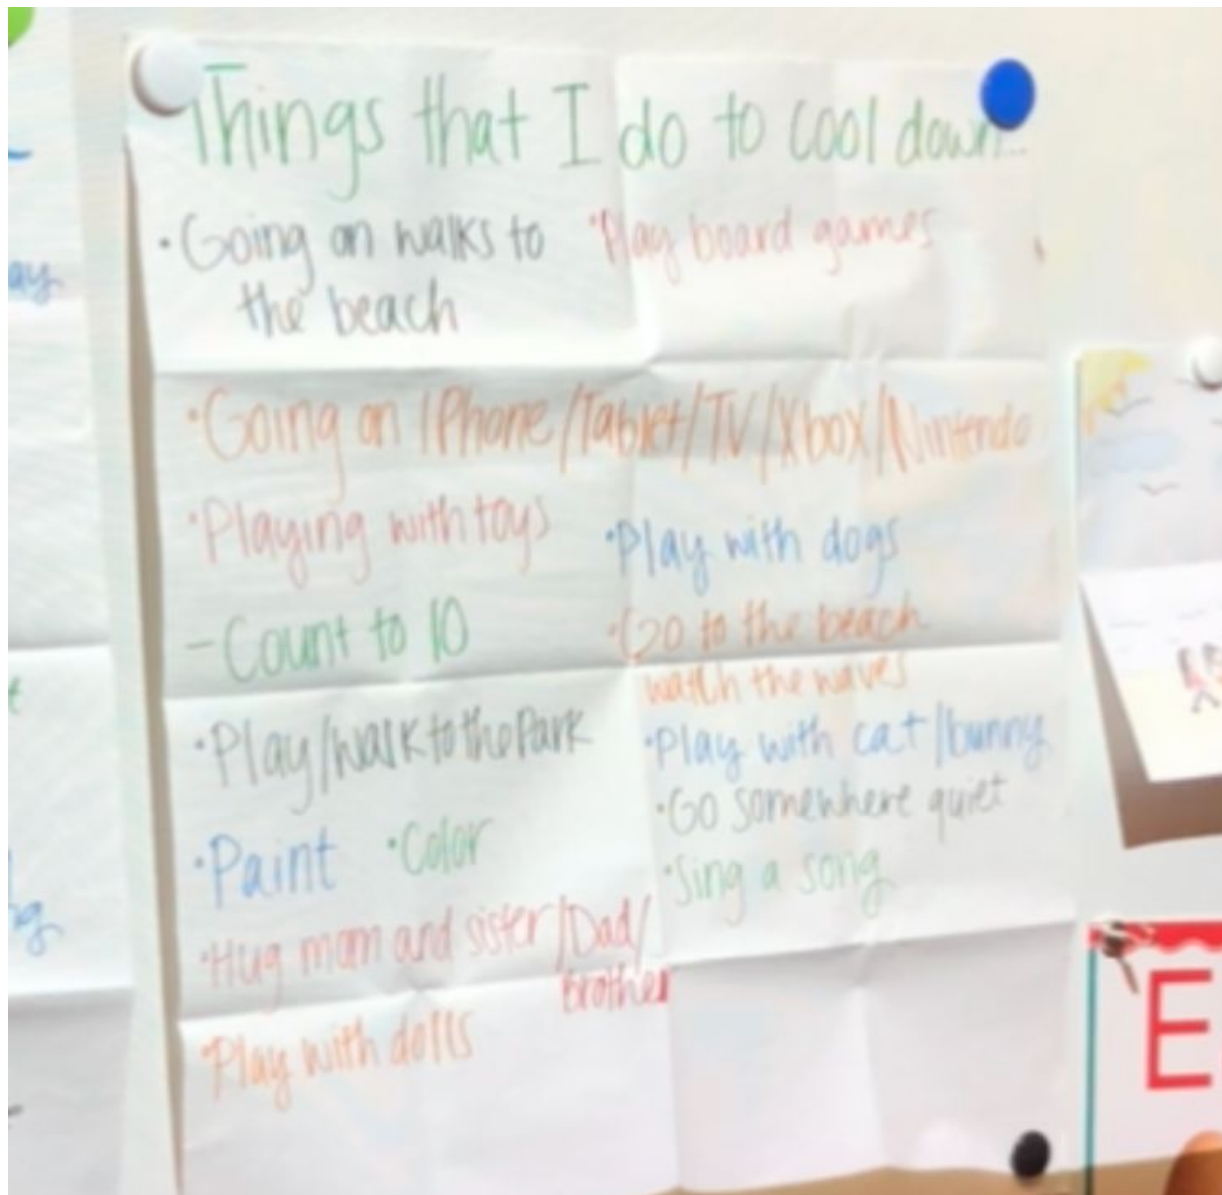 Things that I do to cool down...
• Going on walks to
the beach
• Play board games
• Going on IPhone/Tablet/TV/Xbox/Nintendo
• Playing with toys
• Play with dogs
- Count to 10
• Go to the beach
watch the waves
• Play/walk to the Park
• Play with cat/bunny
• Go somewhere quiet
• Paint • Color
• Sing a song
• Hug mom and sister/Dad/
Brother
• Play with dolls
E